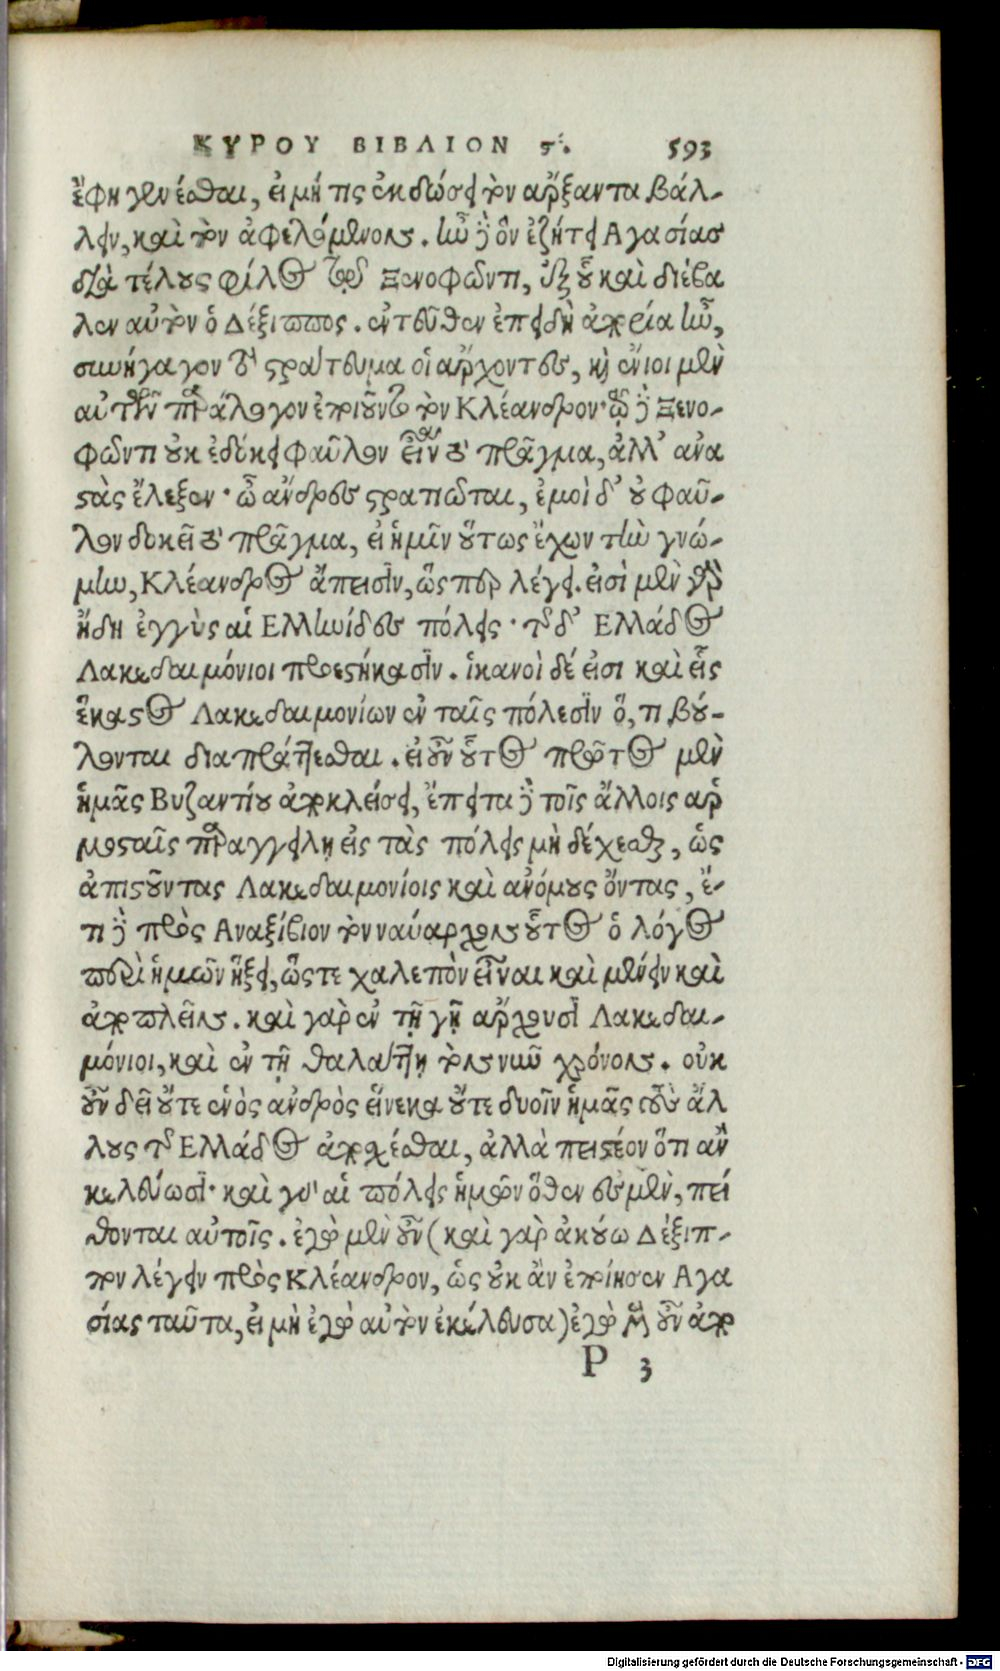 ΚΥΡΟΥ ΒΙΒΛΙΟΝ ϛ'. 593
ἔφη γενέσθαι, εἰ μή τις ἐκδώσει τὸν ἄρξαντα βάλ-
λειν, καὶ τὸν ἀφελόμενον. ἦν δὲ ὃν ἐζήτει Αγασίας
διὰ τέλους φίλος τῷ Ξενοφῶντι, ἐξ οὗ καὶ διέβα
λεν αὐτὸν ὁ Δέξιππος. ἐντεῦθεν ἐπειδὴ ἀπορία ἦν,
συνήγαγον τὸ στράτευμα οἱ ἄρχοντες, καὶ ἔνιοι μὲν
αὐτῶν παρ' ὀλίγον ἐποιοῦντο τὸν Κλέανδρον· τῷ δὲ Ξενο-
φῶντι οὐκ ἐδόκει φαῦλον εἶναι τὸ πρᾶγμα, ἀλλ' ἀνα
στὰς ἔλεξεν· ὦ ἄνδρες στρατιῶται, ἐμοὶ δ' οὐ φαῦ-
λον δοκεῖ τὸ πρᾶγμα, εἰ ἡμῖν οὕτως ἔχων τὴν γνώ-
μην, Κλέανδρος ἄπεισιν, ὥςπερ λέγει. εἰσὶ μὲν γὰρ
ἤδη ἐγγὺς αἱ Ελληνίδες πόλεις· τῆς δ' Ελλάδος
Λακεδαιμόνιοι προεστήκασιν. ἱκανοὶ δέ εἰσι καὶ εἷς
ἕκαστος Λακεδαιμονίων ἐν ταῖς πόλεσιν ὅ, τι βού-
λονται διαπράττεσθαι. εἰ οὖν οὗτος πρῶτος μὲν
ἡμᾶς Βυζαντίου ἀποκλείσει, ἔπειτα δὲ τοῖς ἄλλοις ἁρ
μοσταῖς παραγγείλῃ εἰς τὰς πόλεις μὴ δέχεσθαι, ὡς
ἀπιστοῦντας Λακεδαιμονίοις καὶ ἀνόμους ὄντας, ἔ-
τι δὲ πρὸς Αναξίβιον τὸν ναύαρχον οὗτος ὁ λόγος
περὶ ἡμῶν ἥξει, ὥςτε χαλεπὸν εἶναι καὶ μένειν καὶ
ἀποπλεῖν. καὶ γὰρ ἐν τῇ γῇ ἄρχουσι Λακεδαι-
μόνιοι, καὶ ἐν τῇ θαλάττῃ τὸν νῦν χρόνον. οὐκ
οὖν δεῖ οὔτε ἑνὸς ἀνδρὸς εἵνεκα οὔτε δυοῖν ἡμᾶς τοὺς ἄλ
λους τῆς Ελλάδος ἀπέχεσθαι, ἀλλὰ πειστέον ὅτι ἂν
κελεύωσι· καὶ γὰρ αἱ πόλεις ἡμῶν ὅθεν ἐσμὲν, πεί
θονται αὐτοῖς. ἐγὼ μὲν οὖν (καὶ γὰρ ἀκούω Δέξιπ-
πον λέγειν πρὸς Κλέανδρον, ὡς οὐκ ἂν ἐποίησεν Αγα
σίας ταῦτα, εἰ μὴ ἐγὼ αὐτὸν ἐκέλευσα) ἐγὼ μὲν οὖν ἀπο
P 3
Digitalisierung gefördert durch die Deutsche Forschungsgemeinschaft - DFG